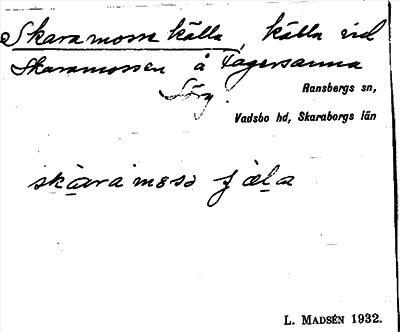 Skaramosse källa, källa vid
Skaramossen å Fagersanna
Ransbergs sn,
Vadsbo hd, Skaraborgs län
L. MADSÉN 1932.